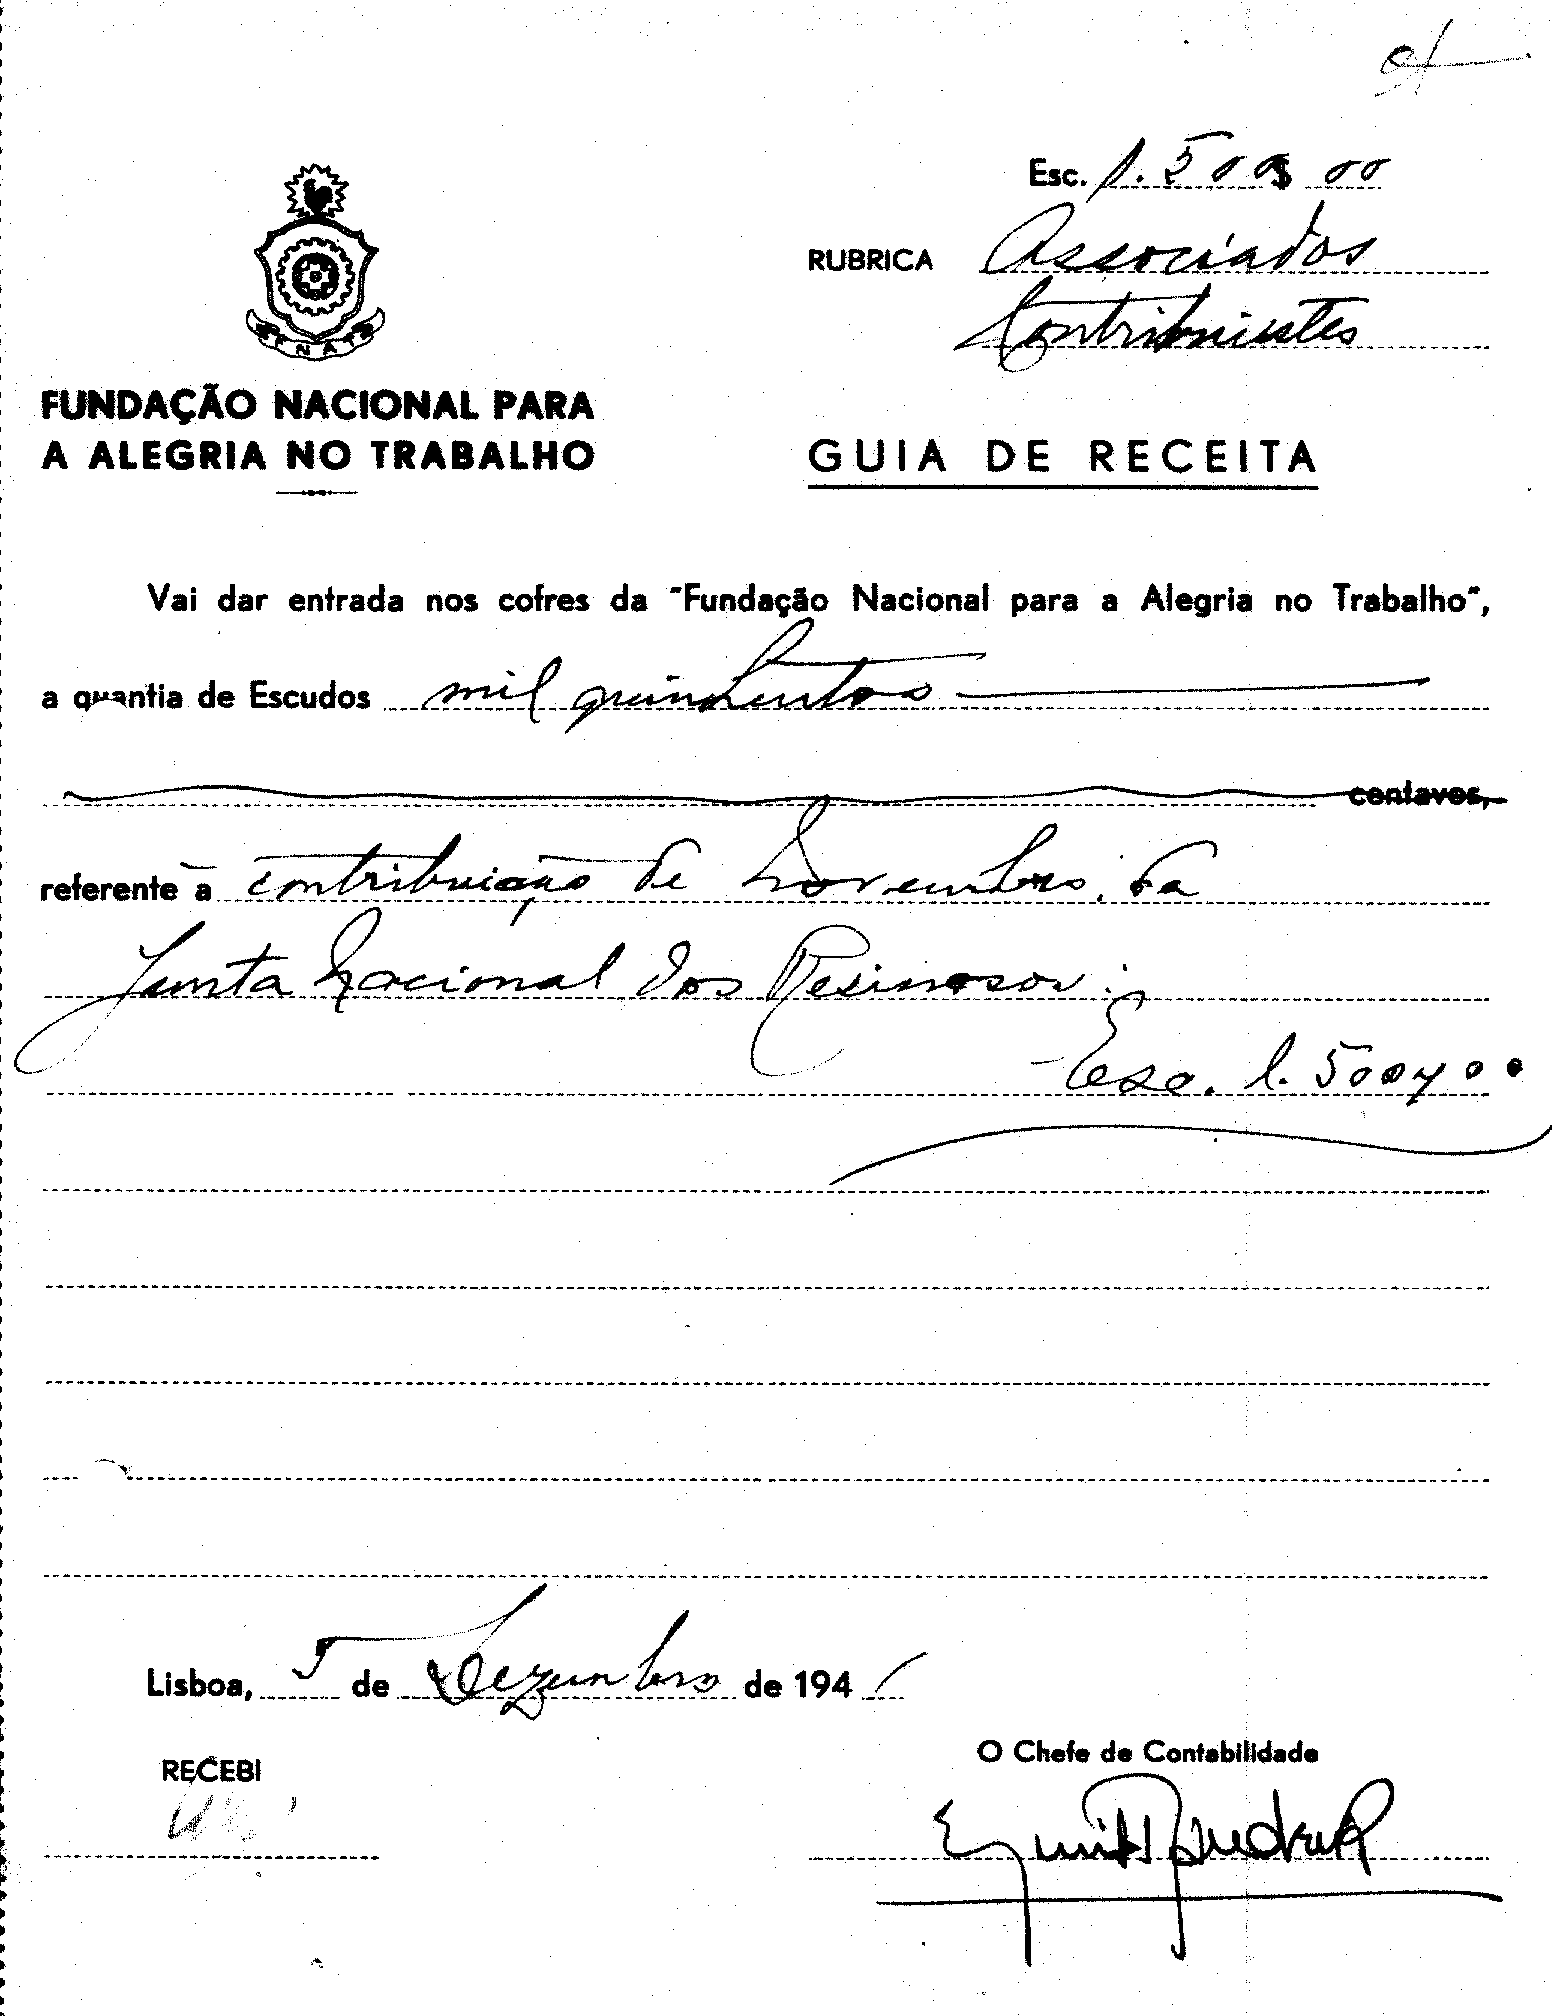 Esc. 1.500$00
RUBRICA Associados
Contribuintes
FNAT
FUNDAÇÃO NACIONAL PARA
A ALEGRIA NO TRABALHO
GUIA DE RECEITA
Vai dar entrada nos cofres da "Fundação Nacional para a Alegria no Trabalho",
a quantia de Escudos mil quinhentos
centavos,
referente à contribuição de Novembro, da
Junta Nacional dos Resinosos:
Esc. 1.500$00
Lisboa, 5 de Dezembro de 194
RECEBI
O Chefe de Contabilidade